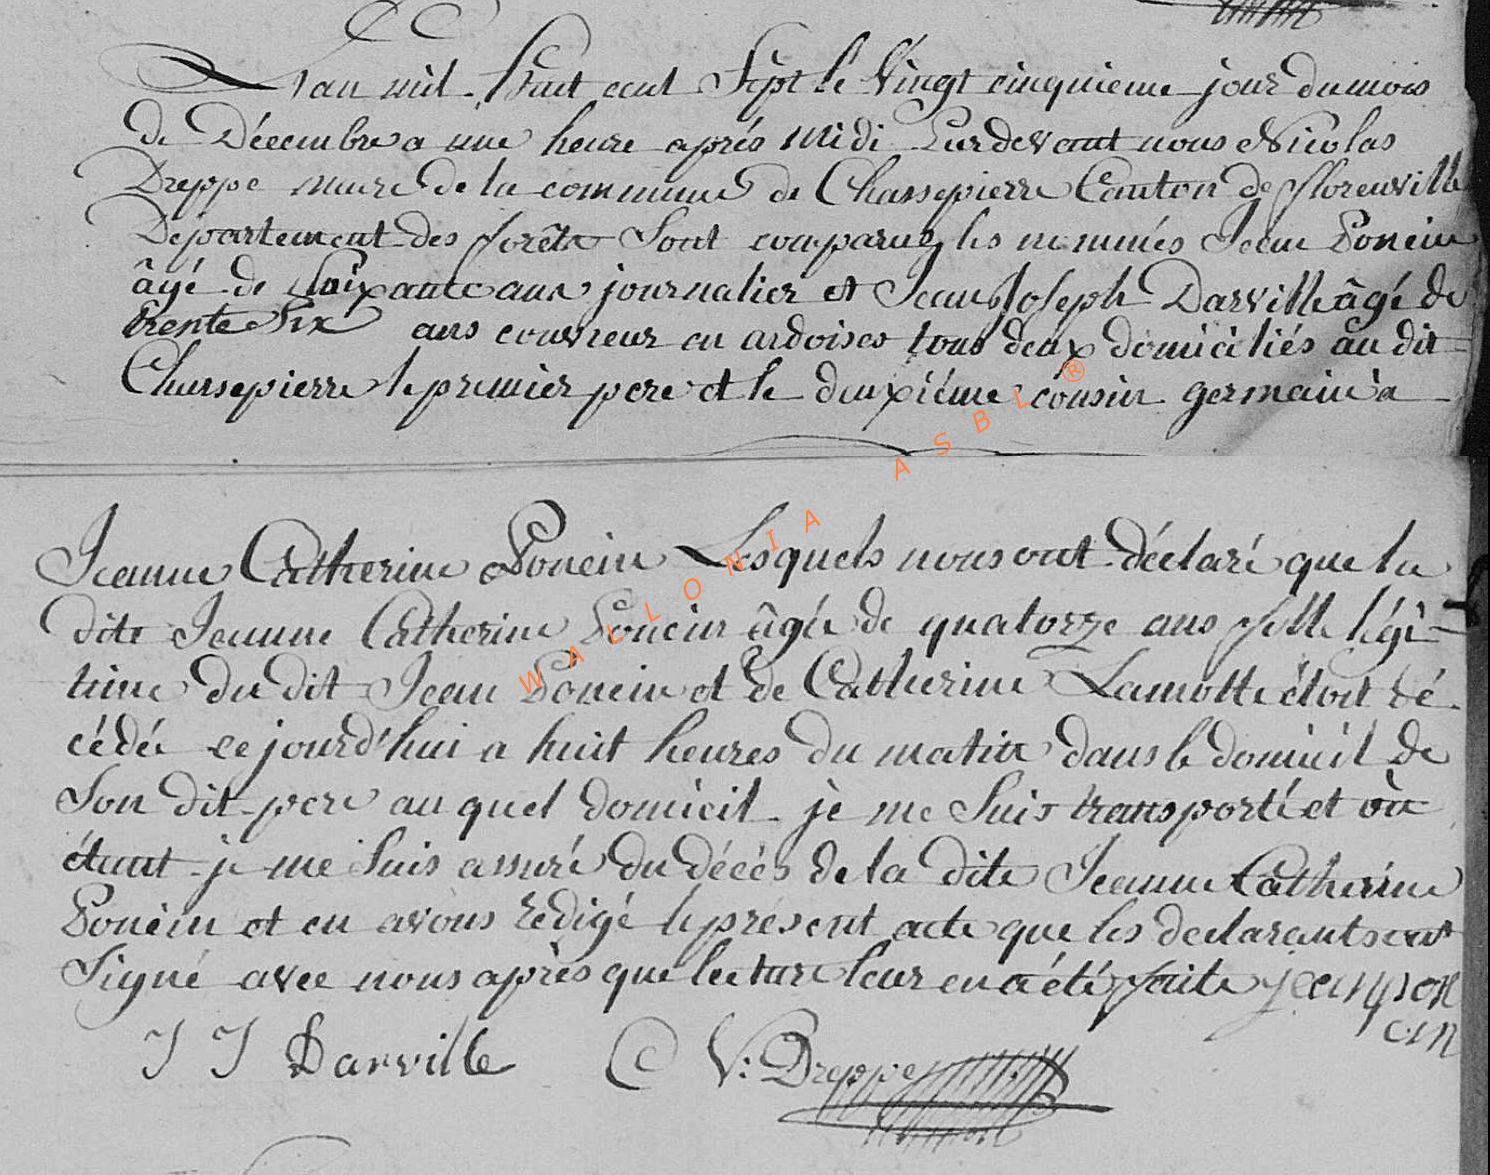 L'an mil huit cent Sept le Vingt cinquieme jour du mois
de Décembre a une heure aprés Midi Pardevant nous Nicolas
Dreppe maire de la commune de Chassepierre Canton de florenville
Département des forêts Sont comparus les nommés Jean Poncin
âgé de Soixante ans journalier et Jean Joseph Darville âgé de
trente Six ans couvreur en ardoises tous deux domiciliés au dit
Chassepierre le premier pere et le deuxiéme cousin germain a
Jeanne Catherine Poncin Lesquels nous ont déclaré que la
dite Jeanne Catherine Poncin âgée de quatorze ans fille légi-
time du dit Jean Poncin et de Catherine Lamotte étoit dé
cédée ce jourd'hui a huit heures du matin dans le domicil de
Son dit pere au quel domicil je me Suis transporté et où
étant je me suis assuré du décès de la dite Jeanne Catherine
Poncin et en avons redigé le présent acte que les declarants ont
Signé avec nous après que lecture leur en a été faite jean pon
cin
J J Darville N: Dreppe
WALLONIA ASBL ®